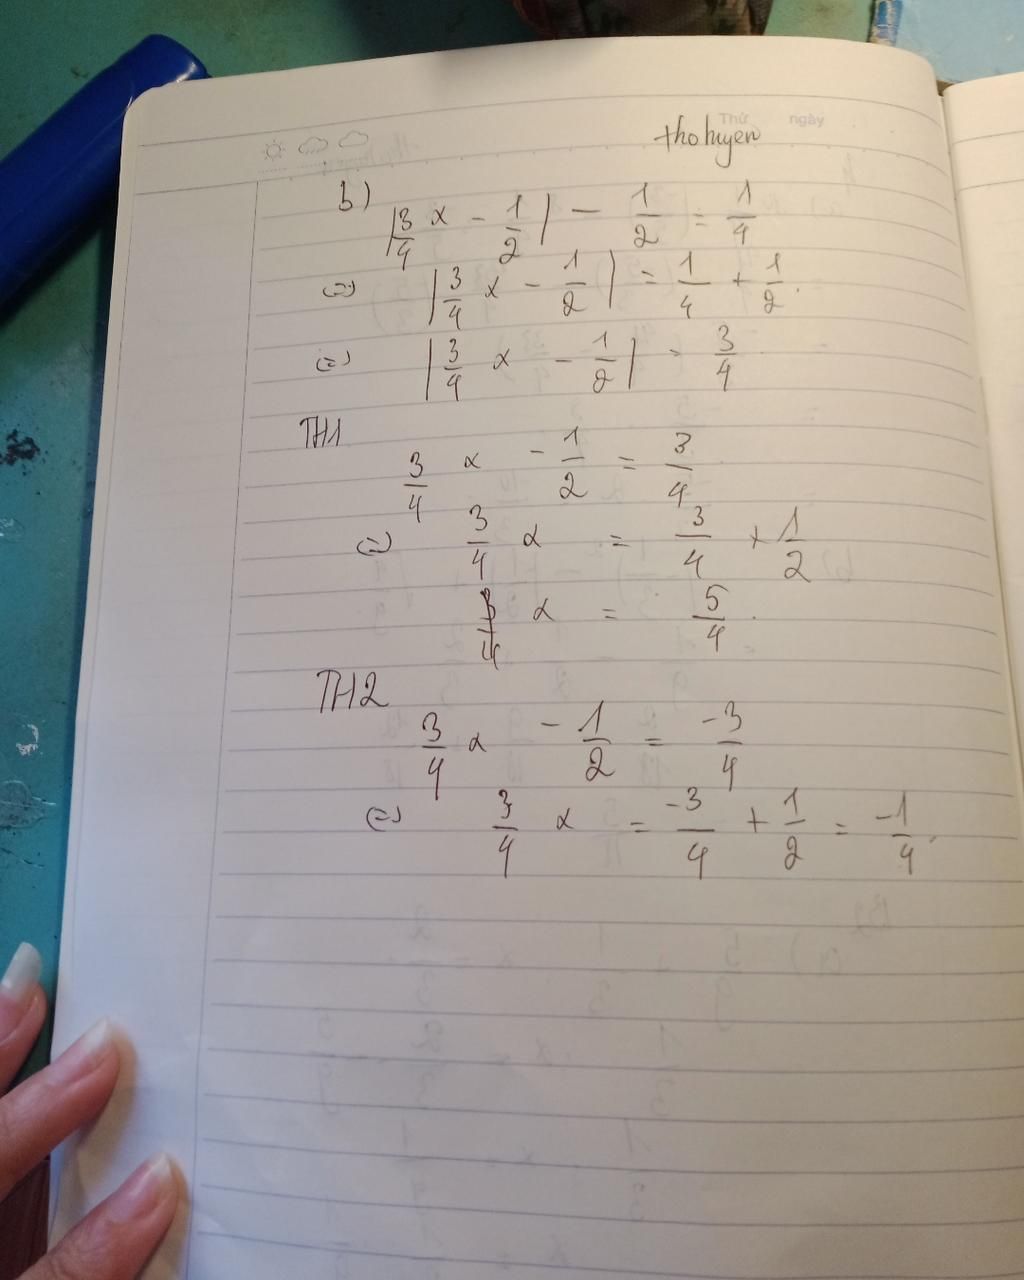 Thứ ngày
thohuyen
b) |3/4 x - 1/2| - 1/2 = 1/4
(=) |3/4 x - 1/2| = 1/4 + 1/2.
(=) |3/4 x - 1/2| = 3/4
TH1
3/4 x - 1/2 = 3/4
(=) 3/4 x = 3/4 + 1/2
3/4 x = 5/4.
TH2
3/4 x - 1/2 = -3/4
(=) 3/4 x = -3/4 + 1/2 = -1/4.